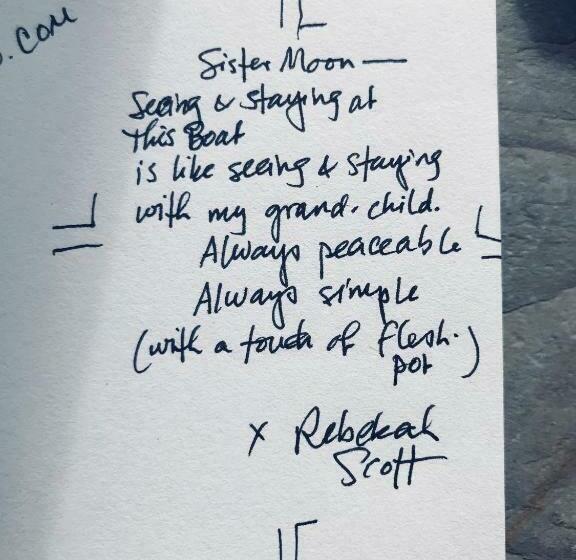 .com
Sister Moon —
Seeing & staying at
this Boat
is like seeing & staying
with my grand-child.
Always peaceable
Always simple
(with a touch of flesh-
pot)
x Rebekah
Scott